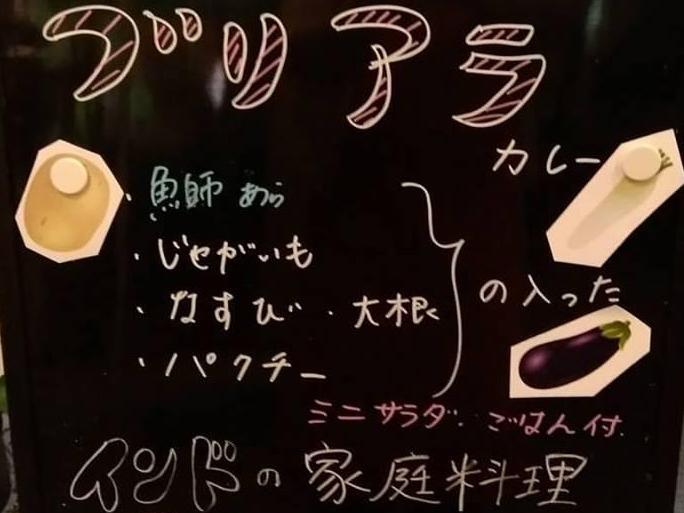 ブリアラ
カレー
・魚師 あら
・じゃがいも
・なすび ・大根
・パクチー
の入った
ミニサラダ・ごはん付.
インドの家庭料理